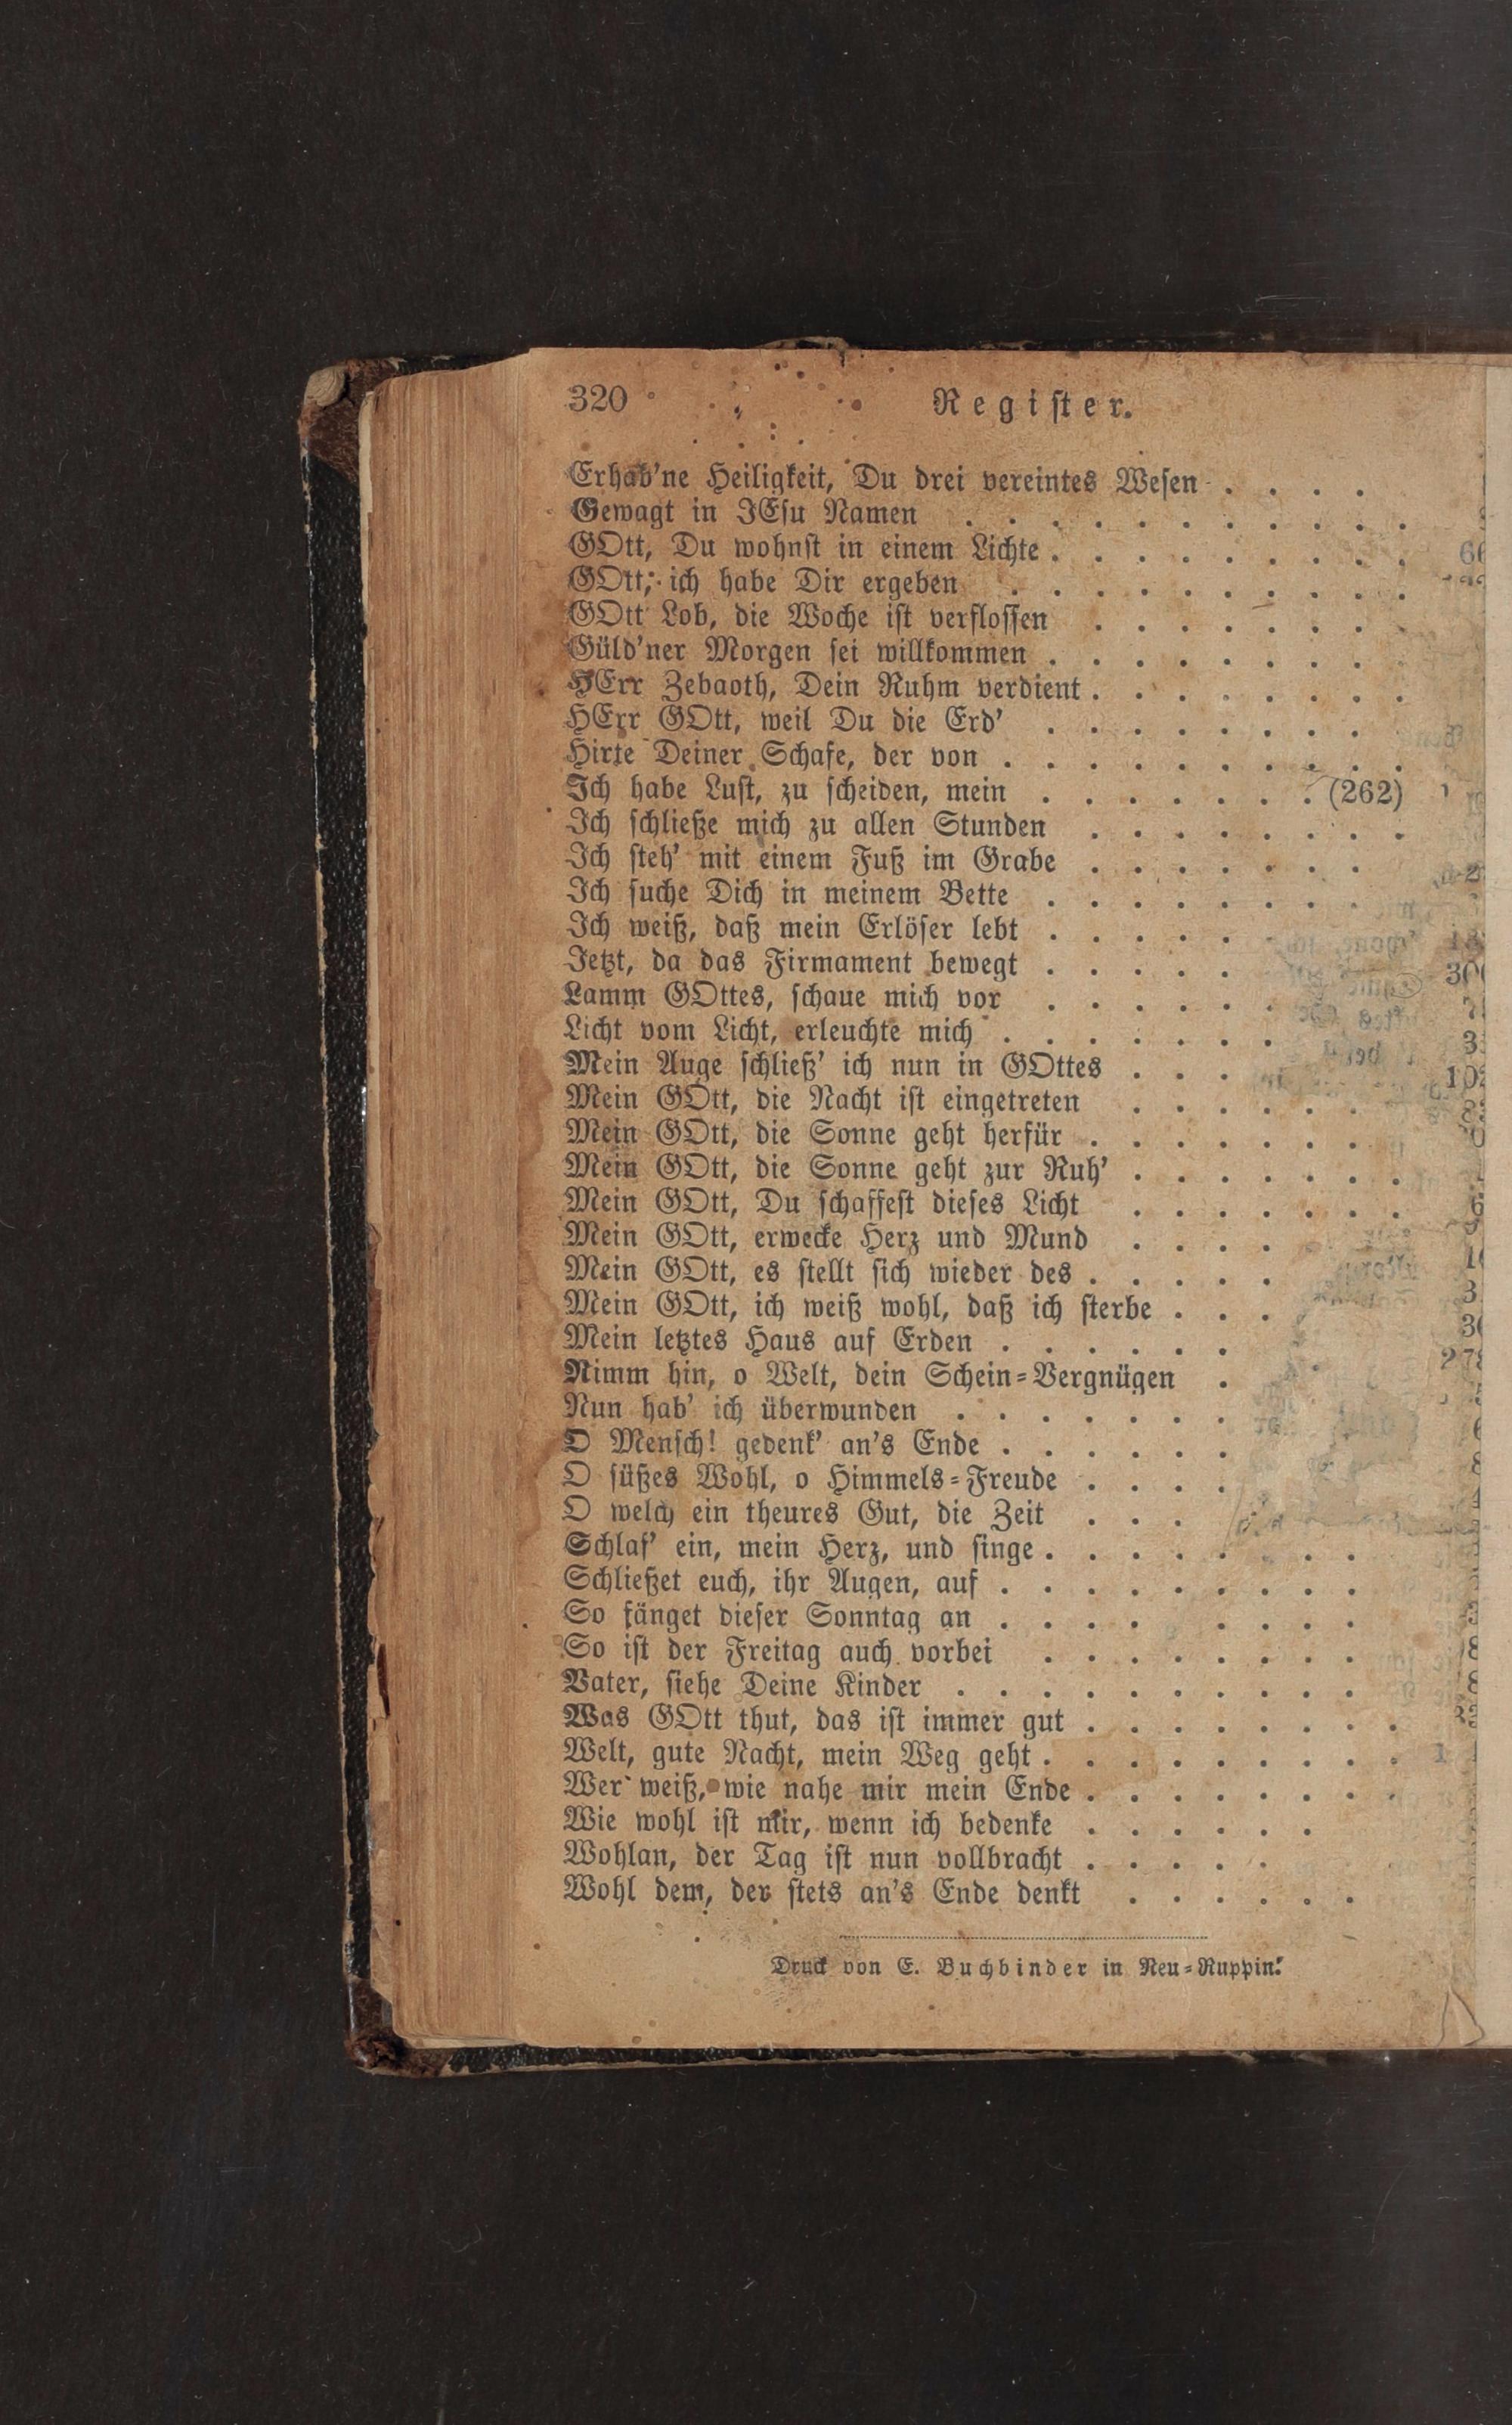 320 Register.
Erhab'ne Heiligkeit, Du drei vereintes Wesen . . . .
Gewagt in JEsu Namen . . . . . . . . . . .
GOtt, Du wohnst in einem Lichte . . . . . . . . .
GOtt, ich habe Dir ergeben . . . . . . . . . .
GOtt Lob, die Woche ist verflossen . . . . . . .
Güld'ner Morgen sei willkommen . . . . . . . . .
HErr Zebaoth, Dein Ruhm verdient . . . . . . . .
HErr GOtt, weil Du die Erd' . . . . . . . .
Hirte Deiner Schafe, der von . . . . . . . . . .
Ich habe Lust, zu scheiden, mein . . . . . . . (262)
Ich schließe mich zu allen Stunden . . . . . . . .
Ich steh' mit einem Fuß im Grabe . . . . . . .
Ich suche Dich in meinem Bette . . . . . . . .
Ich weiß, daß mein Erlöser lebt . . . . .
Jetzt, da das Firmament bewegt . . . . .
Lamm GOttes, schaue mich vor . . . . . .
Licht vom Licht, erleuchte mich . . . . . . .
Mein Auge schließ' ich nun in GOttes . . .
Mein GOtt, die Nacht ist eingetreten . . . . . .
Mein GOtt, die Sonne geht herfür . . . . . . .
Mein GOtt, die Sonne geht zur Ruh' . . . . . . .
Mein GOtt, Du schaffest dieses Licht . . . . . . .
Mein GOtt, erwecke Herz und Mund . . . .
Mein GOtt, es stellt sich wieder des . . . . .
Mein GOtt, ich weiß wohl, daß ich sterbe . . .
Mein letztes Haus auf Erden . . . . . .
Nimm hin, o Welt, dein Schein-Vergnügen .
Nun hab' ich überwunden . . . . . . .
O Mensch! gedenk' an's Ende . . . . . .
O süßes Wohl, o Himmels-Freude . . . .
O welch ein theures Gut, die Zeit . . .
Schlaf' ein, mein Herz, und singe . . . . . . .
Schließet euch, ihr Augen, auf . . . . . . . . .
So fänget dieser Sonntag an . . . . . . . .
So ist der Freitag auch vorbei . . . . . . . .
Vater, siehe Deine Kinder . . . . . . . . . .
Was GOtt thut, das ist immer gut . . . . . . . .
Welt, gute Nacht, mein Weg geht . . . . . . . . .
Wer weiß, wie nahe mir mein Ende . . . . . . . .
Wie wohl ist mir, wenn ich bedenke . . . . . .
Wohlan, der Tag ist nun vollbracht . . . . .
Wohl dem, der stets an's Ende denkt . . . . . .
Druck von E. Buchbinder in Neu-Ruppin.